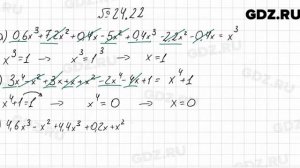 GDZ.RU
№ 24.22
) 0,6x³ + 7,2x² + 0,4x - 5x² + 0,4x³ - 2,2x² - 0,4x = x³
x³ = 1 → x³ = 1³ → x = 1
) 3x⁴ - x² + 3x + x + x² - 2x⁴ - 4x + 1 = x⁴ + 1
x⁴ + 1 = 1 → x⁴ = 0 → x = 0
) 4,6x³ - x² + 4,4x³ + 0,2x + x²
GDZ.RU